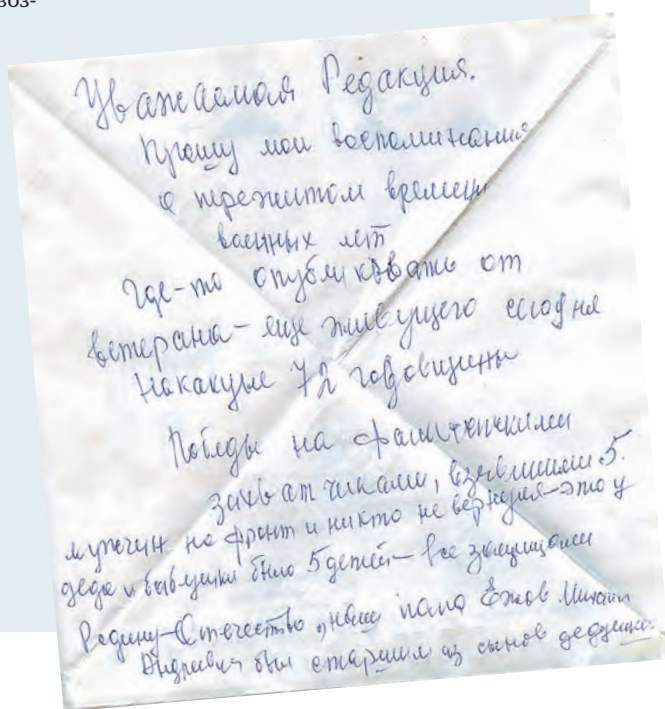 воз-
Уважаемая Редакция.
Прошу мои воспоминания
о пережитом времени
военных лет
Где-то опубликовать от
ветерана - еще живущего сегодня
накануне 72 годовщины
Победы на фашистскими
захватчиками, взявшими 5
мужчин на фронт и никто не вернулся - это у
деда и бабушки было 5 детей - все защищали
Родину-Отечество, наш папа Ежов Михаил
Андреевич был старшим из сынов дедушки.